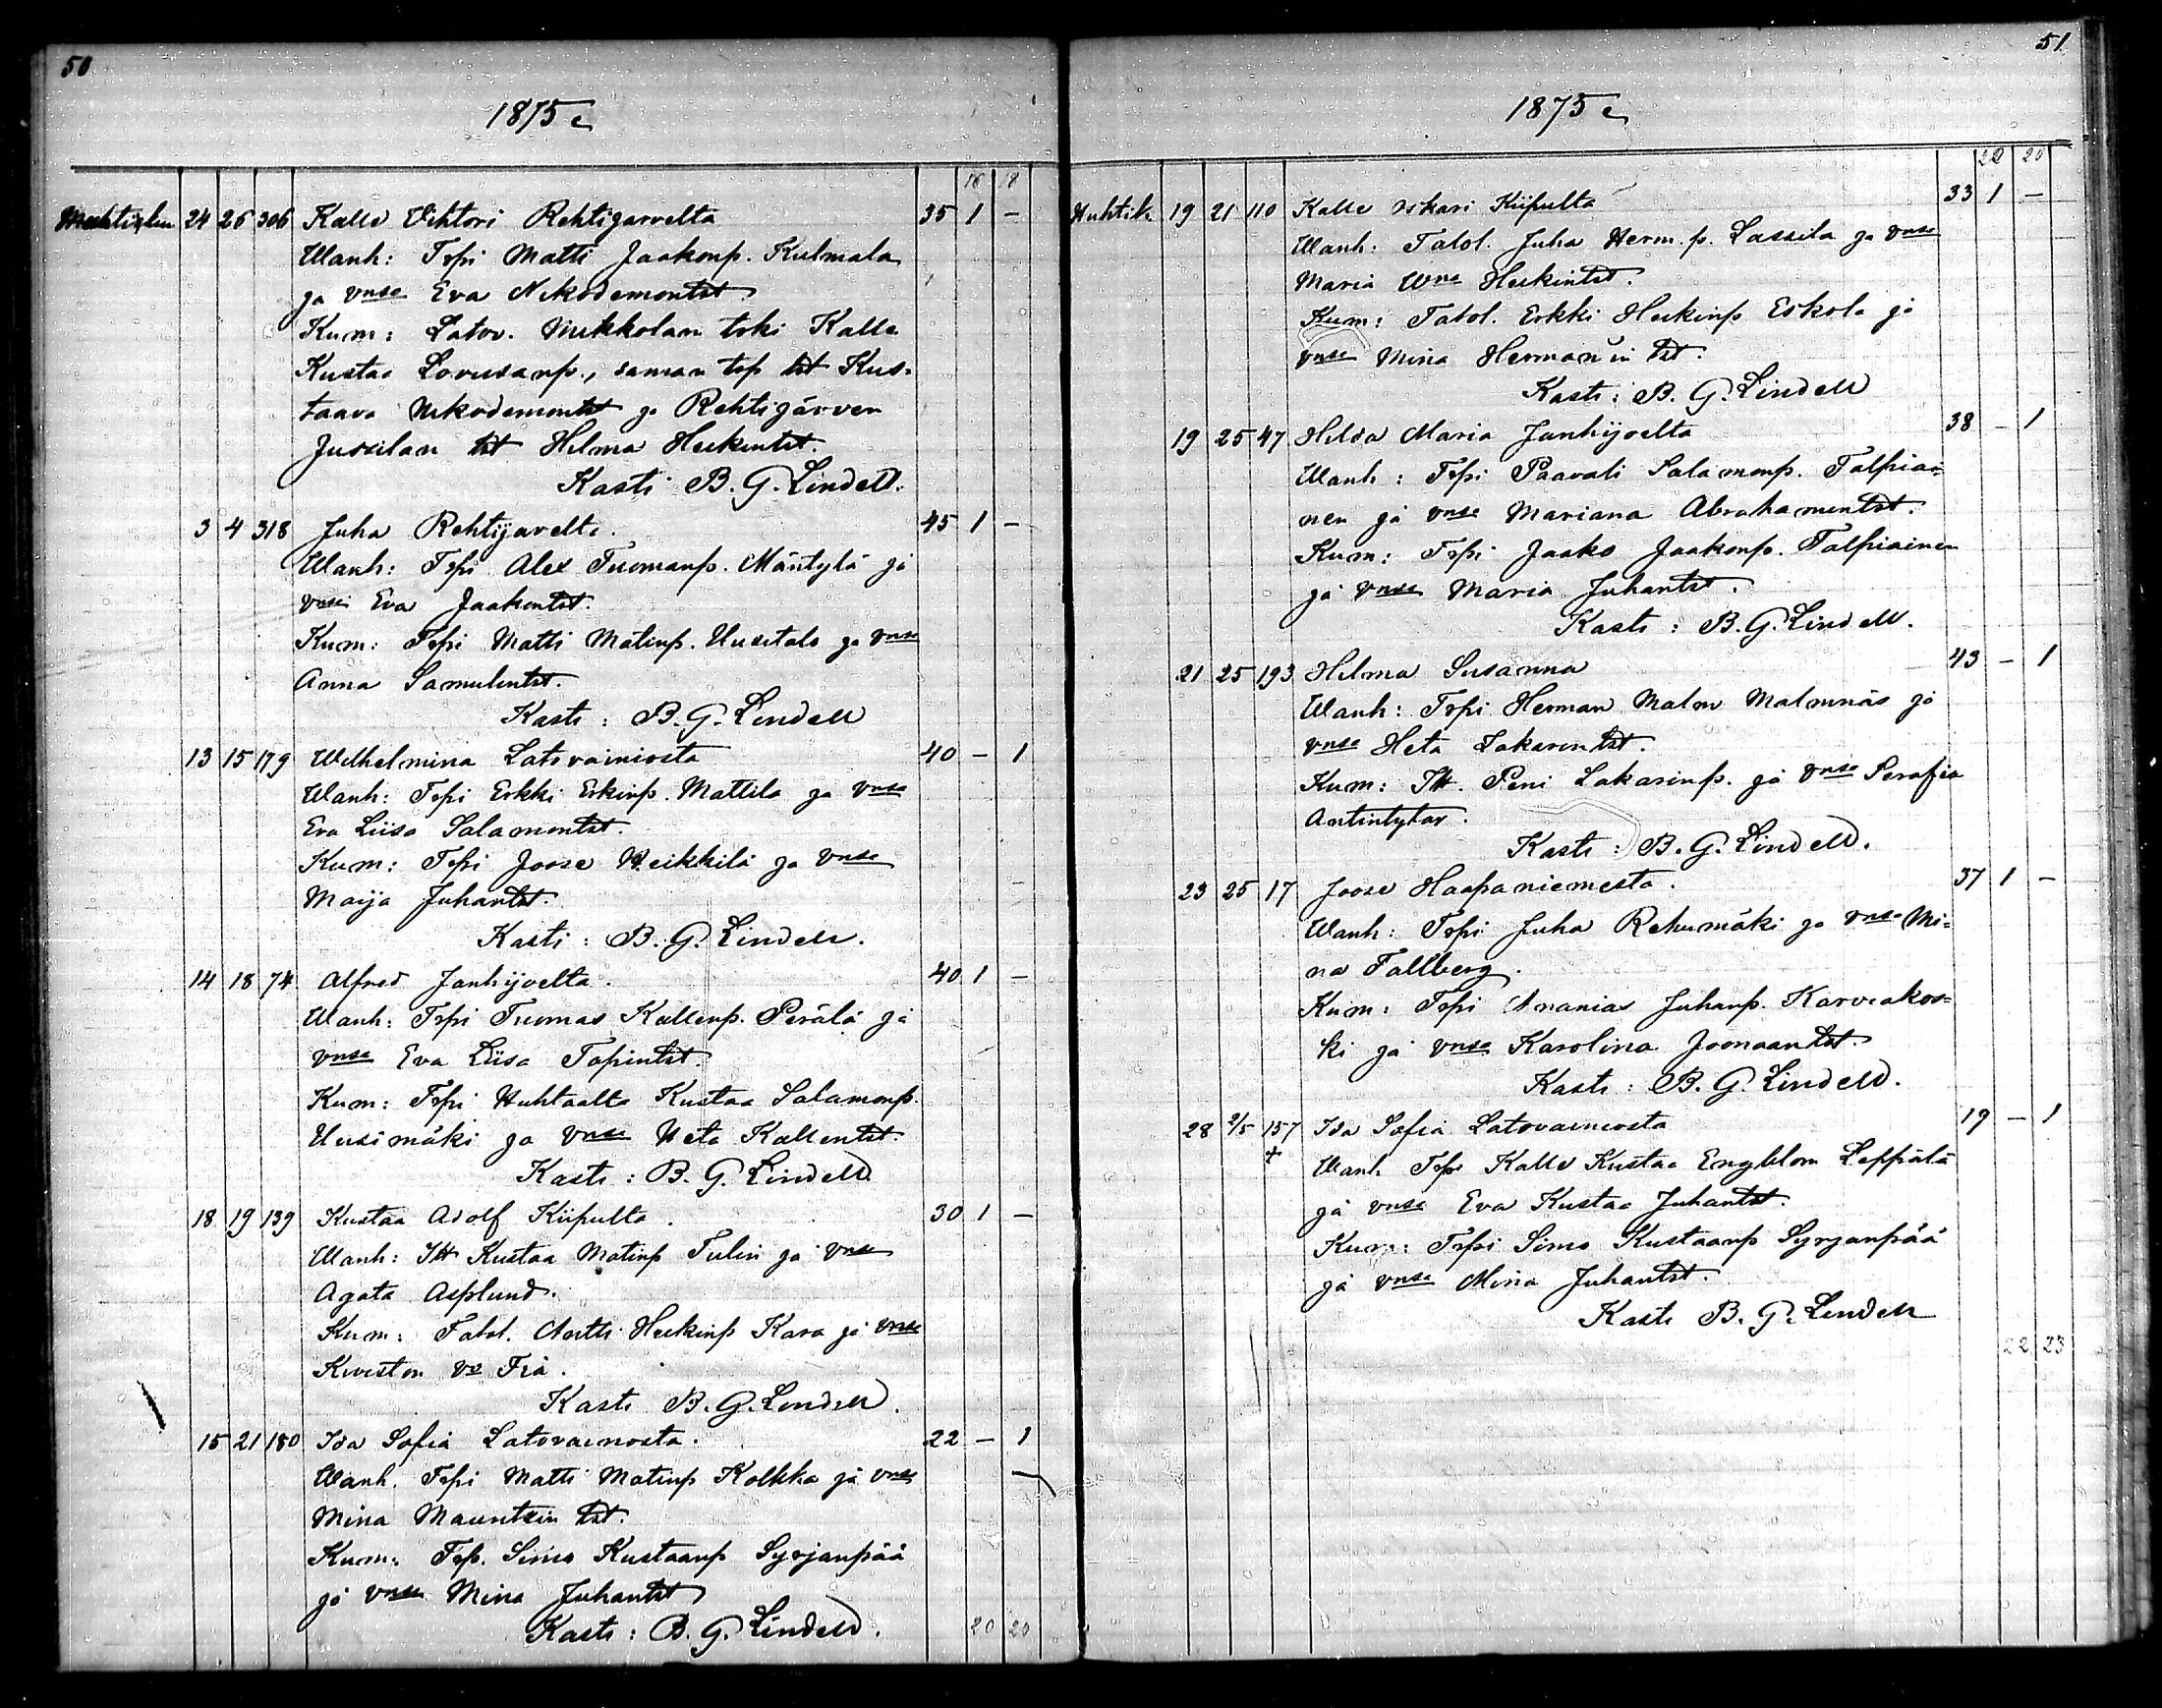 50
1875
16 18
Huhtikuu 24 26 306 Kalle Vihtori Rehtijarvelta 35 1 –
Wanh: Trpi Matti Jaakonp. Kulmala
ja vnsa Eva Nikodemontrt
Kum: Latov. Mikkolan trki Kalle
Kustaa Lovisanp., saman trp trt Kus-
taava Nikodemontrt ja Rehtijärven
Jussilan trt Hilma Heikintrt.
Kasti B. G. Lindell.
3 4 318 Juha Rehtijarvelta. 45 1 –
Wanh: Trpi Alex Tuomanp. Mäntylä ja
vnsa Eva Jaakontrt.
Kum: Trpi Matti Matinp. Uusitalo ja vnsa
Anna Samulintrt.
Kasti: B. G. Lindell
13 15 179 Wilhelmina Latovainiosta 40 – 1
Wanh: Trpi Erkki Erkinp. Mattila ja vnsa
Eva Liisa Salamontrt.
Kum: Trpi Joose Heikkilä ja vnsa
Maija Juhantrt.
Kasti: B. G. Lindell.
14 18 74 Alfred Janhijoelta. 40 1 –
Wanh: Trpi Tuomas Kallenp. Perälä ja
vnsa Eva Liisa Topintrt.
Kum: Trpi Huhtaalta Kustaa Salamonp.
Uusimäki ja vnsa Heta Kallentrt.
Kasti: B. G. Lindell
18 19 139 Kustaa Adolf Kiipulta. 30 1 –
Wanh: Itt Kustaa Matinp Tulin ja vnsa
Agata Asplund.
Kum: Talol. Antti Heikinp Kara ja vnsa
Kiviston vo Fia.
Kasti B. G. Lindell.
15 21 180 Ida Sofia Latovainosta. 22 – 1
Wanh. Trpi Matti Matinp Kolkka ja vnsa
Mina Mauntzin trt.
Kum: Trp. Simo Kustaanp Syrjanpää
ja vnsa Mina Juhantrt
Kasti: B. G. Lindell. 20 20
51
1875
22 20
Huhtik. 19 21 110 Kalle Oskari Kiipulta 33 1 –
Wanh: Talol. Juha Herm. p. Lassila ja vnsa
Maria Heikintrt.
Kum: Talol. Erkki Heikinp Eskola ja
vnsa Mina Hermanin trt.
Kasti: B. G. Lindell
19 25 47 Hilda Maria Janhijoelta 38 – 1
Wanh: Trpi Paavali Salamonp. Talpiai-
nen ja vnsa Mariana Abrahamintrt.
Kum: Trpi Jaako Jaakonp. Talpiainen
ja vnsa Maria Juhantrt.
Kasti: B. G. Lindell.
21 25 193 Hilma Susanna 43 – 1
Wanh: Trpi Herman Malm Malmnäs ja
vnsa Heta Sakarintrt.
Kum: Itt. Peni Sakarinp. ja vnsa Serafia
Antintytar.
Kasti: B. G. Lindell.
23 25 17 Joose Haapaniemesta. 37 1 –
Wanh: Trpi Juha Rehumäki ja vnsa Mi-
na Fallberg.
Kum: Trpi Ananias Juhanp. Karviakos-
ki ja vnsa Karolina Joonaantrt.
Kasti: B. G. Lindell.
28 2/5 157 Ida Sofia Latovainiosta 19 – 1
+ Wanh Trpi Kalle Kustaa Engblom Leppälä
ja vnsa Eva Kustaa Juhantrt.
Kum: Trpi Simo Kustaanp Syrjanpää
ja vnsa Mina Juhantrt.
Kasti B. G. Lindell
22 23